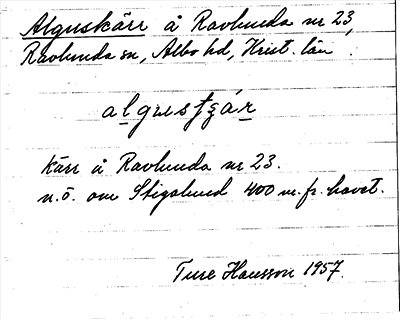 Alguskärr å Ravlunda nr 23,
Ravlunda sn, Albo hd, Krist. län.
algusʃʒár
Kärr å Ravlunda nr 23.
n.ö. om Stigslund 400 m. fr. havet.
Ture Hansson 1957.